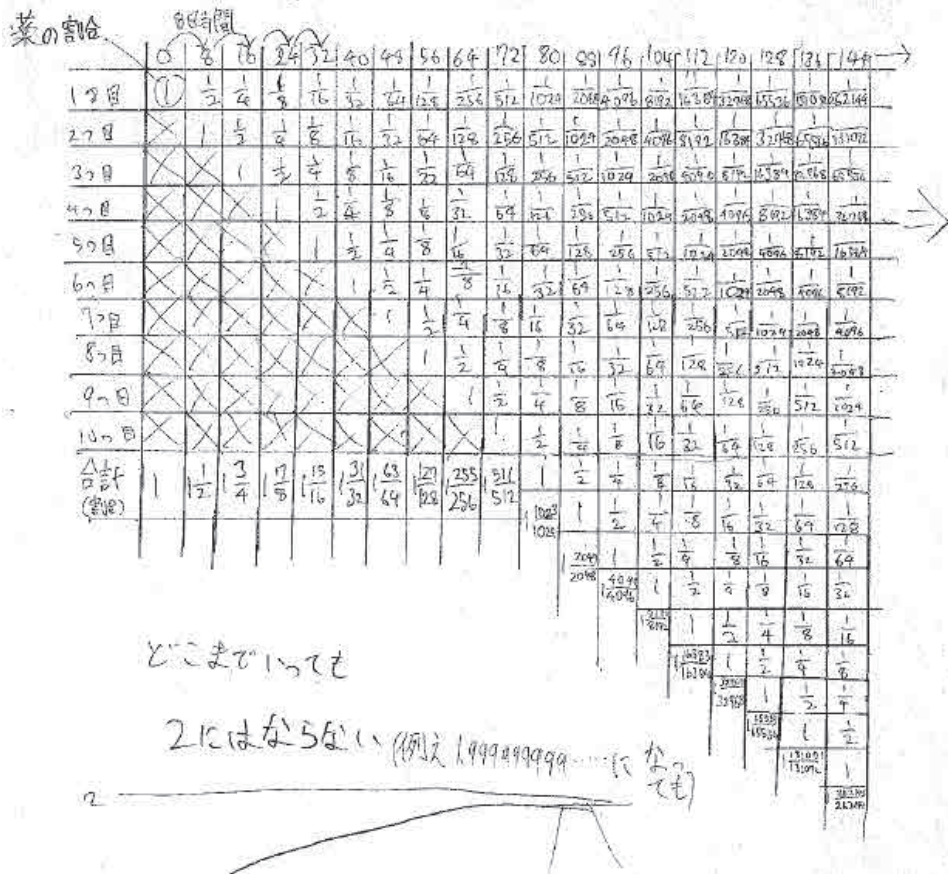 薬の割合
8時間
0 8 16 24 32 40 48 56 64 72 80 88 96 104 112 120 128 136 144
1つ目 1 1/2 1/4 1/8 1/16 1/32 1/64 1/128 1/256 1/512 1/1024 1/2048 1/4096 1/8192 1/16384 1/32768 1/65536 1/131072 1/262144
2つ目 1 1/2 1/4 1/8 1/16 1/32 1/64 1/128 1/256 1/512 1/1024 1/2048 1/4096 1/8192 1/16384 1/32768 1/65536 1/131072
3つ目 1 1/2 1/4 1/8 1/16 1/32 1/64 1/128 1/256 1/512 1/1024 1/2048 1/4096 1/8192 1/16384 1/32768 1/65536
4つ目 1 1/2 1/4 1/8 1/32 1/64 1/128 1/256 1/512 1/1024 1/2048 1/4096 1/8192 1/16384 1/32768
5つ目 1 1/2 1/4 1/8 1/16 1/32 1/64 1/128 1/256 1/512 1/1024 1/2048 1/4096 1/8192 1/16384
6つ目 1 1/2 1/4 1/8 1/16 1/32 1/64 1/128 1/256 1/512 1/1024 1/2048 1/4096 1/8192
7つ目 1 1/2 1/4 1/8 1/16 1/32 1/64 1/128 1/256 1/512 1/1024 1/2048 1/4096
8つ目 1 1/2 1/4 1/8 1/16 1/32 1/64 1/128 1/256 1/512 1/1024 1/2048
9つ目 1 1/2 1/4 1/8 1/16 1/32 1/64 1/128 1/256 1/512 1/1024
10つ目 1 1/2 1/4 1/8 1/16 1/32 1/64 1/128 1/256 1/512
合計 1 1 1/2 1 3/4 1 7/8 1 15/16 1 31/32 1 63/64 1 127/128 1 255/256 1 511/512 1 1/2 1/4 1/8 1/16 1/32 1/64 1/128 1/256
(割合) 1 1023/1024 1 1/2 1/4 1/8 1/16 1/32 1/64 1/128
1 2047/2048 1 1/2 1/4 1/8 1/16 1/32 1/64
1 4095/4096 1 1/2 1/4 1/8 1/16 1/32
1 1/2 1/4 1/8 1/16
1 16383/16384 1 1/2 1/4 1/8
1 1/2 1/4
1 1/2
1 131071/131072 1
どこまでいっても
2にはならない (例え1.999999999……になっ
ても)
2